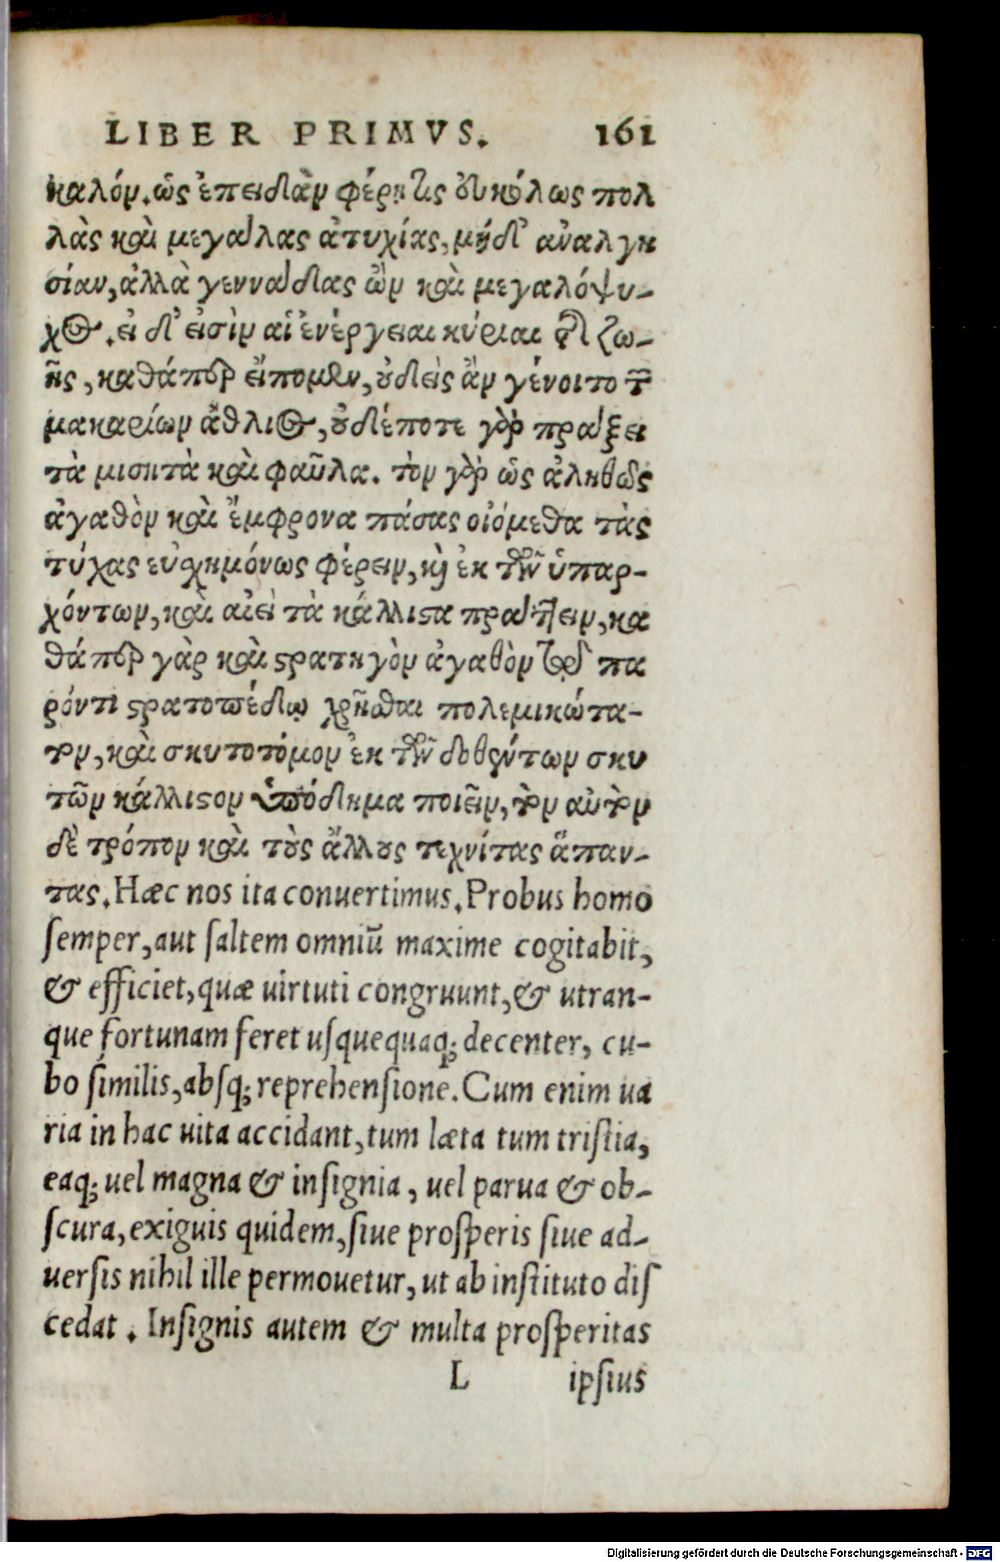 LIBER PRIMVS. 161
καλόν. ὡς ἐπειδὰν φέρῃ τις εὐκόλως πολ
λὰς καὶ μεγάλας ἀτυχίας, μὴ δι' ἀναλγη
σίαν, ἀλλὰ γεννάδας ὢν καὶ μεγαλόψυ-
χος. εἰ δ' εἰσὶν αἱ ἐνέργειαι κύριαι τῆς ζω-
ῆς, καθάπερ εἴπομεν, οὐδεὶς ἂν γένοιτο τῶν
μακαρίων ἄθλιος, οὐδέποτε γὰρ πράξει
τὰ μισητὰ καὶ φαῦλα. τὸν γὰρ ὡς ἀληθῶς
ἀγαθὸν καὶ ἔμφρονα πάσας οἰόμεθα τὰς
τύχας εὐσχημόνως φέρειν, καὶ ἐκ τῶν ὑπαρ-
χόντων, καὶ αἰεὶ τὰ κάλλιστα πράττειν, κα
θάπερ γὰρ καὶ στρατηγὸν ἀγαθὸν τῷ πα
ρόντι στρατοπέδῳ χρῆσθαι πολεμικώτα-
τον, καὶ σκυτοτόμον ἐκ τῶν δοθέντων σκυ
τῶν κάλλιστον ὑπόδημα ποιεῖν, τὸν αὐτὸν
δὲ τρόπον καὶ τοὺς ἄλλους τεχνίτας ἅπαν-
τας. Hæc nos ita conuertimus. Probus homo
semper, aut saltem omniū maxime cogitabit,
& efficiet, quæ uirtuti congruunt, & utran-
que fortunam feret usquequaq; decenter, cu-
bo similis, absq; reprehensione. Cum enim ua
ria in hac uita accidant, tum læta tum tristia,
eaq; uel magna & insignia, uel parua & ob-
scura, exiguis quidem, siue prosperis siue ad-
uersis nihil ille permouetur, ut ab instituto dis
cedat. Insignis autem & multa prosperitas
L ipsius
Digitalisierung gefördert durch die Deutsche Forschungsgemeinschaft - DFG